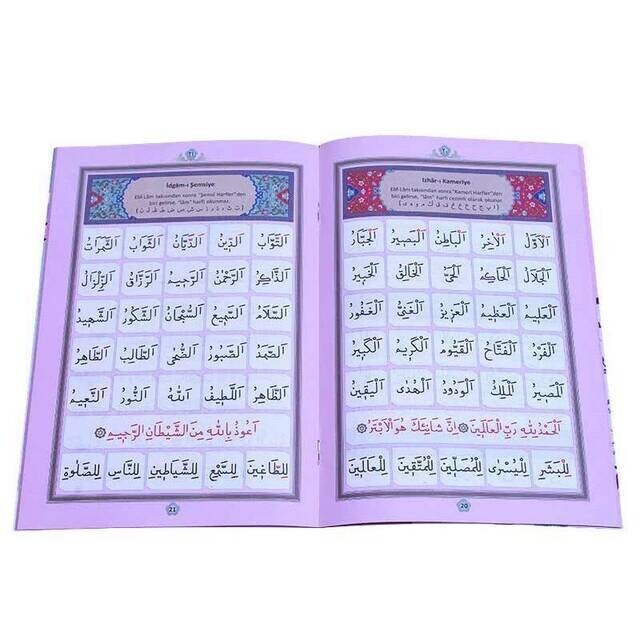 ٢٠
Izhâr-ı Kameriye
Elif-Lâm takısından sonra "Kameri Harfler"den
biri gelirse, "lâm" harfi cezimli olarak okunur.
اَلْاَوَّلُ اَلْاٰخِرُ اَلْبَاطِنُ اَلْبَصِيرُ اَلْجَبَّارُ
اَلْجَلَالُ اَلْحَاكِمُ اَلْحَيُّ اَلْخَالِقُ اَلْخَبِيرُ
اَلْعَلِيمُ اَلْعَظِيمُ اَلْعَزِيزُ اَلْغَنِيُّ اَلْغَفُورُ
اَلْفَرْدُ اَلْفَتَّاحُ اَلْقَيُّومُ اَلْكَرِيمُ اَلْكَبِيرُ
اَلْمَصِيرُ اَلْمَلِكُ اَلْوَدُودُ اَلْهُدٰى اَلْيَقِينُ
اَلْحَمْدُ لِلّٰهِ رَبِّ الْعَالَمِينَ ۞ اِنَّ شَانِئَكَ هُوَ الْاَبْتَرُ ۞
لِلْبَشَرِ لِلْيُسْرٰى لِلْمُصَلِّينَ لِلْمُتَّقِينَ لِلْعَالَمِينَ
20
٢١
İdgâm-ı Şemsiye
Elif-Lâm takısından sonra "Şemsî Harfler"den
biri gelirse, "lâm" harfi okunmaz.
( ت ث د ذ ر ز س ش ص ض ط ظ ل ن )
اَلتَّوَّابُ اَلدِّينُ اَلدَّيَّانُ اَلثَّوَابُ اَلثَّمَرَاتُ
اَلذَّاكِرُ اَلرَّحْمٰنُ اَلرَّحِيمُ اَلرَّزَّاقُ اَلزِّلْزَالُ
اَلسَّلَامُ اَلسَّمِيعُ اَلسُّبْحَانُ اَلشَّكُورُ اَلشَّهِيدُ
اَلصَّمَدُ اَلصَّبُورُ اَلضُّحٰى اَلطَّالِبُ اَلطَّاهِرُ
اَلظَّاهِرُ اَللَّطِيفُ اَللّٰهُ اَلنُّورُ اَلنَّعِيمُ
اَعُوذُ بِاللّٰهِ مِنَ الشَّيْطَانِ الرَّجِيمِ ۞
لِلطَّاغِينَ لِلسَّمْعِ لِلشَّيَاطِينِ لِلنَّاسِ لِلصَّلٰوةِ
21